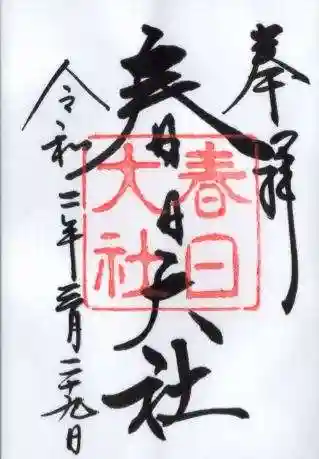 奉拝
春日大社
春日
大社
令和二年三月二十九日